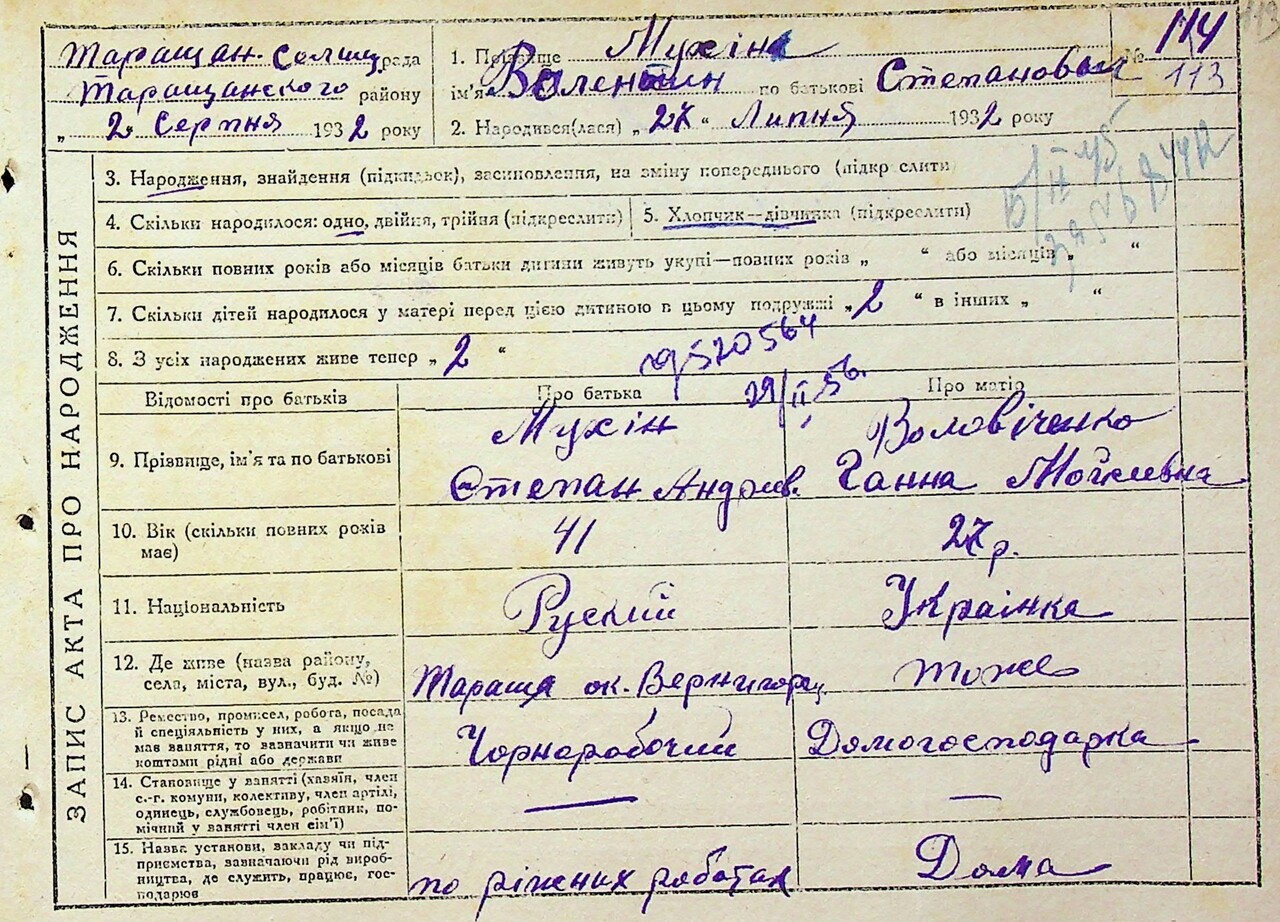 114 113
Таращан. Селищ рада
Таращанского району
„ 2. Серпня 1932 року
1. Прізвище Мухін
ім'я Валентин по батькові Степанович
№ 113
2. Народився(лася) „ 27 “ Липня 1932 року
ЗАПИС АКТА ПРО НАРОДЖЕННЯ
3. Народження, знайдення (підкидьок), засиновлення, на зміну попереднього (підкр слити)
4. Скільки народилося: одно, двійня, трійня (підкреслити)
5. Хлопчик—дівчинка (підкреслити)
6. Скільки повних років або місяців батьки дитини живуть укупі—повних років „ “ або місяців „ “
7. Скільки дітей народилося у матері перед цією дитиною в цьому подружжі „ 2 “ в інших „ “
8. З усіх народжених живе тепер „ 2 “
520564
29/II 56.
Відомості про батьків
Про батька
Про матір
9. Прізвище, ім'я та по батькові
Мухін
Степан Андреев.
Воловіченко
Ганна Мойсеевна
10. Вік (скільки повних років
має)
41
27 р.
11. Національність
Руский
Украінка
12. Де живе (назва району,
села, міста, вул., буд. №)
Тараща ок. Вернигор
тоже
13. Ремество, промисел, робота, посада
й спеціяльність у них, а якщо не
мав заняття, то зазначити чи живе
коштами рідні або держави
Чорнаробочий
Домогосподарка
14. Становище у занятті (хазяїн, член
с.-г. комуни, колективу, член артілі,
одинець, службовець, робітник, по-
мічний у занятті член сім'ї)
15. Назва установи, закладу чи під-
приємства, зазначаючи рід вироб-
ництва, де служить, працює, гос-
подарює
по ріжних роботах
Дома